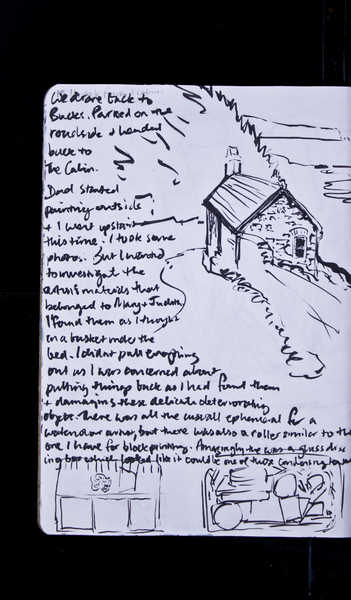 We drove back to
Bucks. Parked on the
roadside & headed
back to
the Cabin.
Dad started
painting outside
& I went upstairs
this time. I took some
photos. But I wanted
to investigate the
artists materials that
belonged to Mary & Judith.
I found them as I thought
in a basket under the
bed. I didnt pull everything
out as I was concerned about
putting things back as I had found them
& damaging these delicate deteriorating
objects. There was all the usual ephemera for a
watercolour artist, but there was also a roller similar to the
one I have for block printing. Amazingly there was a glass disc
in a box which looked like it could be one of those containing